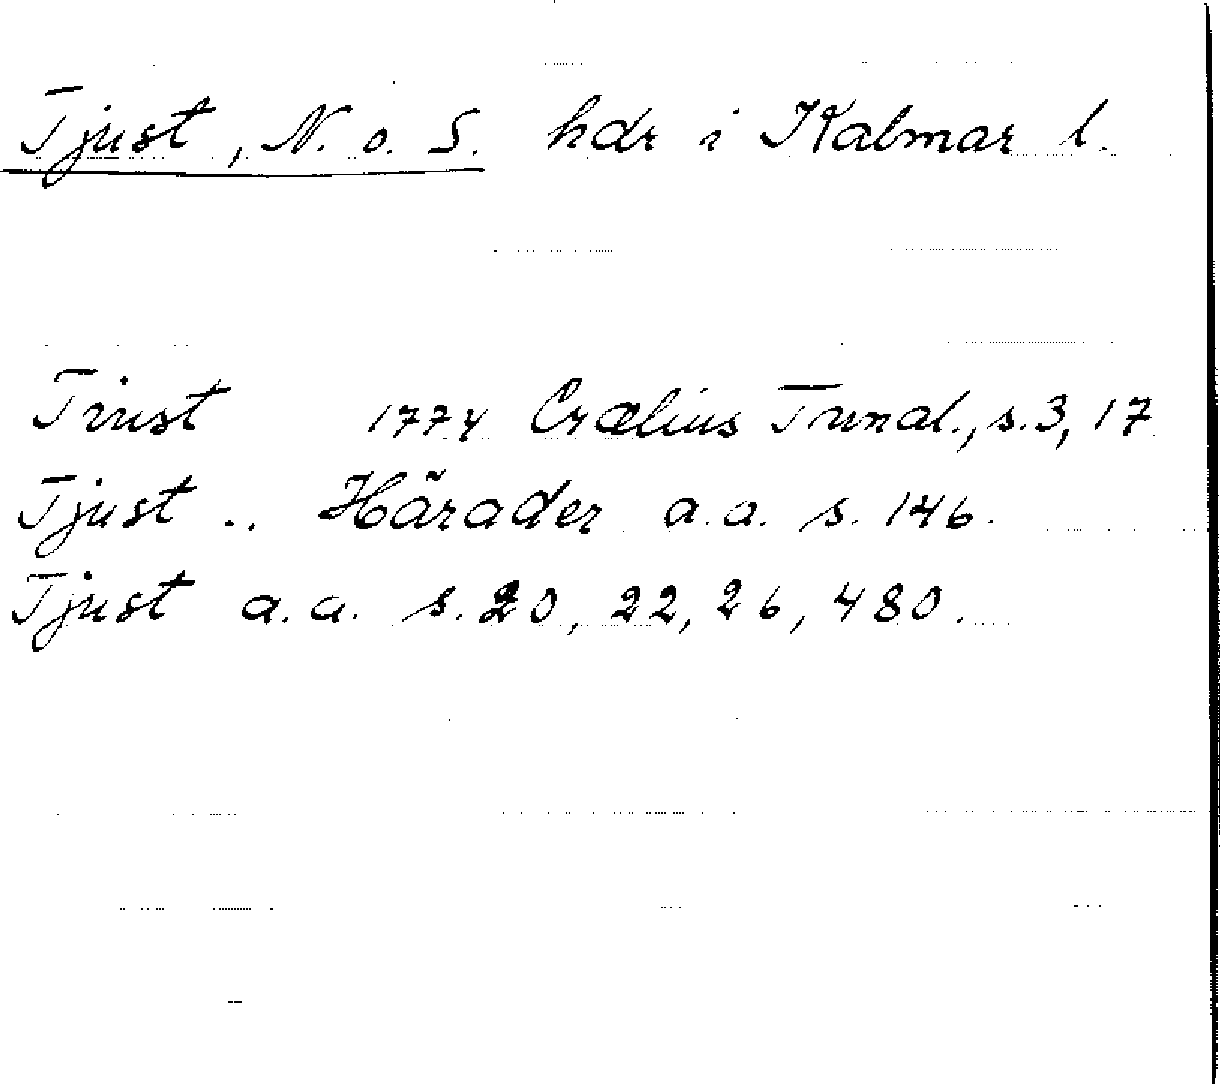 Tjust, N. o. S. hdr i Kalmar l.
Tiust 1774 Crælius Tunal., s. 3, 17
Tjust .. Härader a.a. s. 146.
Tjust a.a. s. 20, 22, 26, 480.